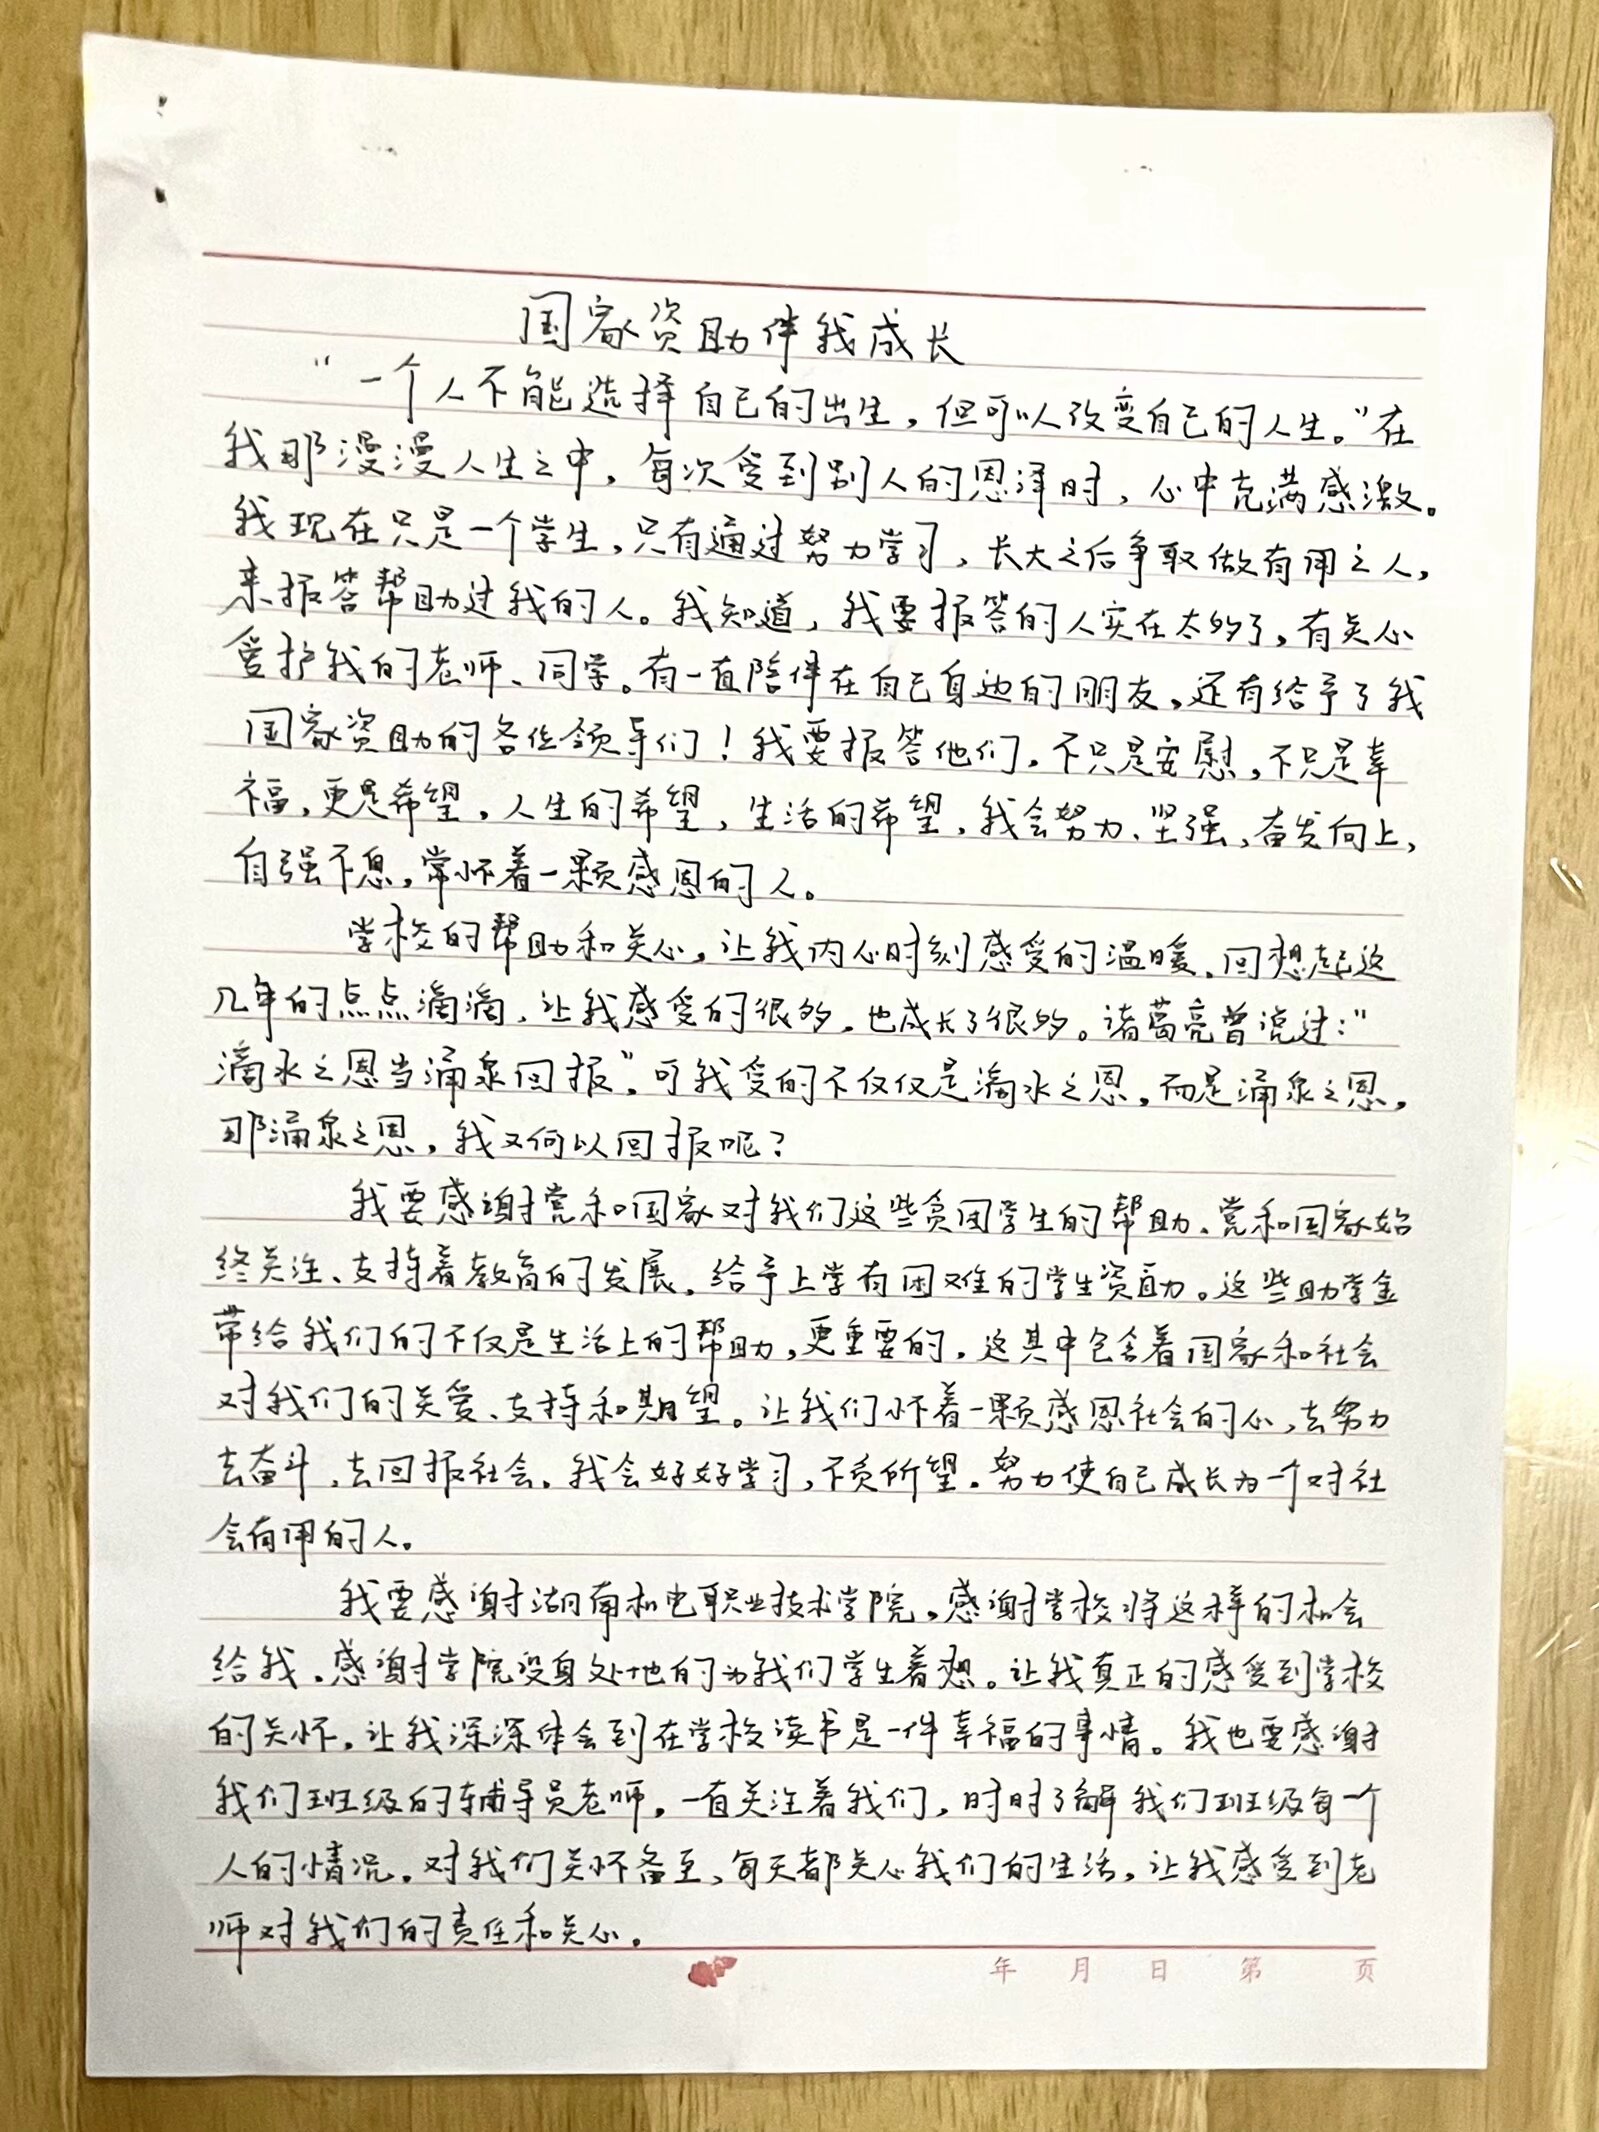 国家资助伴我成长
“一个人不能选择自己的出生，但可以改变自己的人生。”在
我那漫漫人生之中，每次受到别人的恩泽时，心中充满感激。
我现在只是一个学生，只有通过努力学习，长大之后争取做有用之人，
来报答帮助过我的人。我知道，我要报答的人实在太多了，有关心
爱护我的老师、同学。有一直陪伴在自己身边的朋友，还有给予了我
国家资助的各位领导们！我要报答他们，不只是安慰，不只是幸
福，更是希望，人生的希望，生活的希望，我会努力、坚强，奋发向上，
自强不息，常怀着一颗感恩的人。
学校的帮助和关心，让我内心时刻感受的温暖，回想起这
几年的点点滴滴，让我感受的很多，也成长了很多。诸葛亮曾说过：“
滴水之恩当涌泉回报”。可我受的不仅仅是滴水之恩，而是涌泉之恩，
那涌泉之恩，我又何以回报呢？
我要感谢党和国家对我们这些贫困学生的帮助、党和国家始
终关注、支持着教育的发展，给予上学有困难的学生资助。这些助学金
带给我们的不仅是生活上的帮助，更重要的，这其中包含着国家和社会
对我们的关爱、支持和期望。让我们怀着一颗感恩社会的心，去努力
去奋斗，去回报社会，我会好好学习，不负所望。努力使自己成长为一个对社
会有用的人。
我要感谢湖南机电职业技术学院，感谢学校将这样的机会
给我，感谢学院设身处地的为我们学生着想。让我真正的感受到学校
的关怀，让我深深体会到在学校读书是一件幸福的事情。我也要感谢
我们班级的辅导员老师，一直关注着我们，时时了解我们班级每一个
人的情况，对我们关怀备至，每天都关心我们的生活，让我感受到老
师对我们的责任和关心。
年 月 日 第 页